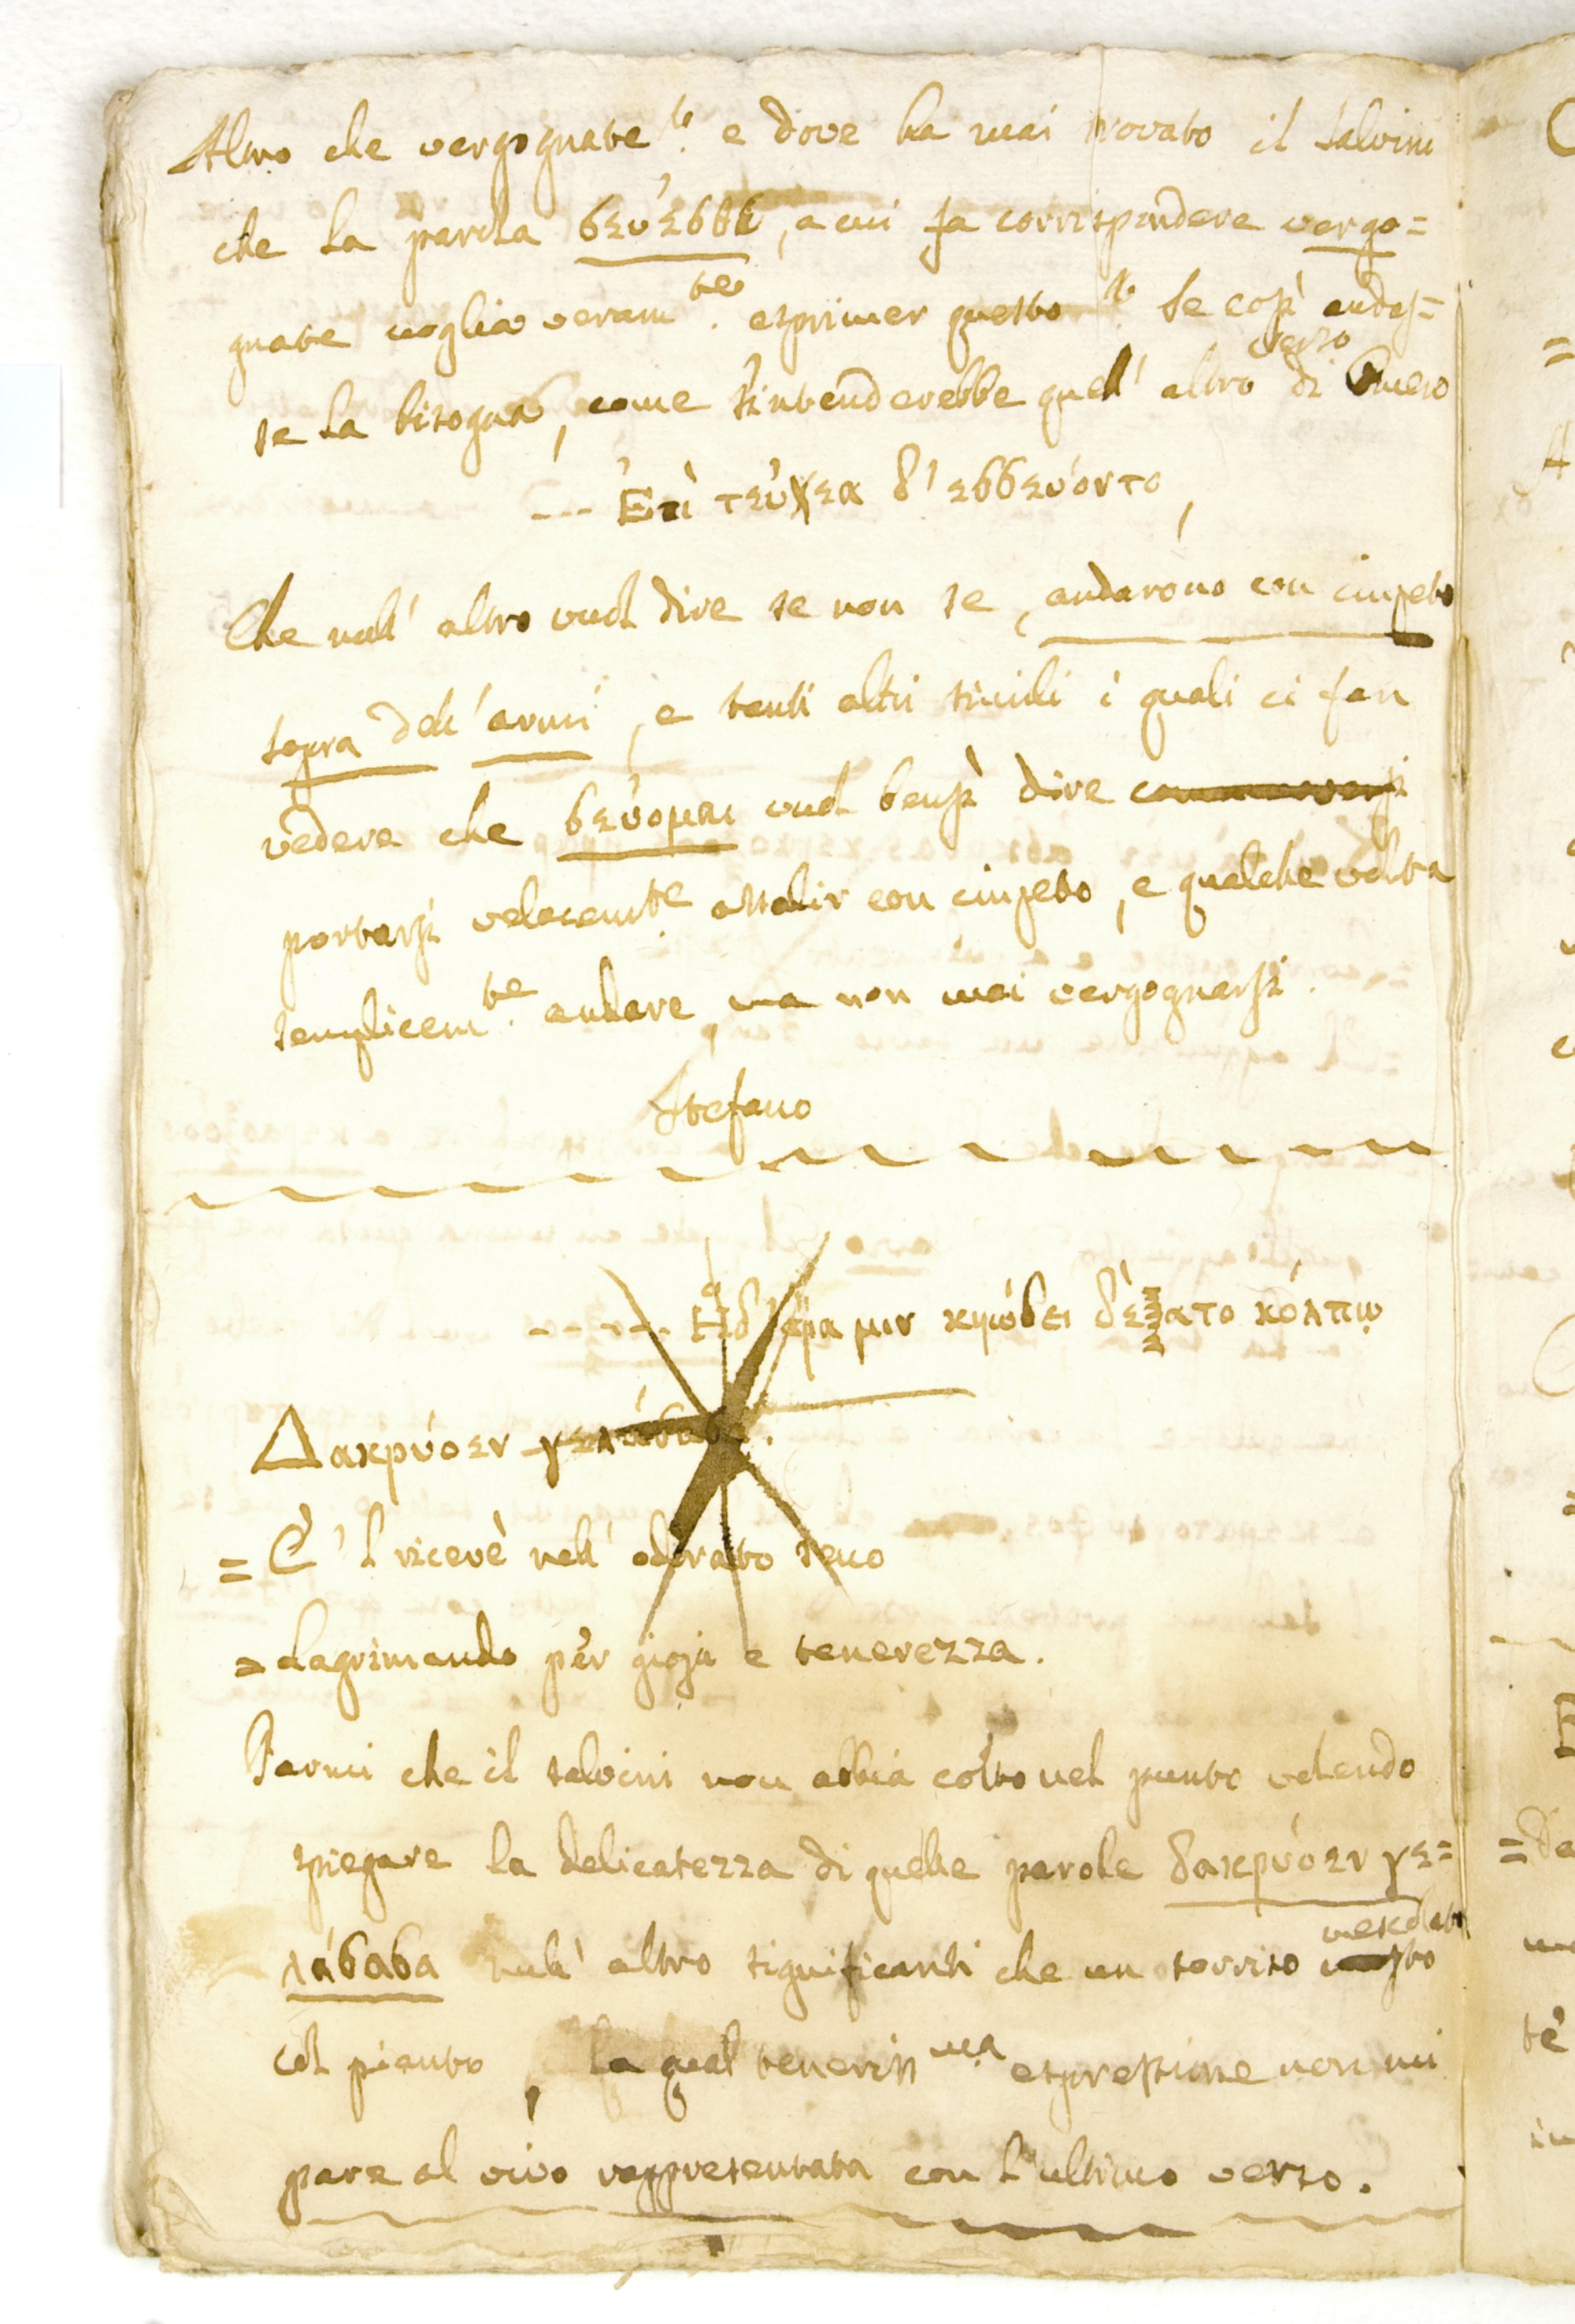 Altro che vergognate!! e dove ha mai trovato il Salvini
che la parola σεύεσθε, a cui fa corrispondere vergo=
gnate voglia veram.te esprimer questo!! Se così andas=
se la bisogna, come s'intenderebbe quell' altro verso di Omero
--- Ἐπὶ τεύχεα δ' ἐσσεύοντο,
Che null' altro vuol dire se non se, andarono con impeto
sopra dell' armi, e tanti altri simili i quali ci fan
vedere che σεύομαι vuol bensì dire
portarsi velocem.te assalir con impeto, e qualche volta
semplicem.te andare, ma non mai vergognarsi.
Stefano
------ Ἡ δ' ἄρα μιν κηώδει δέξατο κόλπῳ
Δακρυόεν γελάσασα.
= E 'l ricevè nell' odorato seno
= Lagrimando per gioja e tenerezza.
Parmi che il Salvini non abbia colto nel punto volendo
spiegare la delicatezza di quelle parole δακρυόεν γε=
λάσασα null' altro significanti che un sorriso mescolato
col pianto, la qual teneriss.ma espressione non mi
pare al vivo rappresentata con l'ultimo verso.